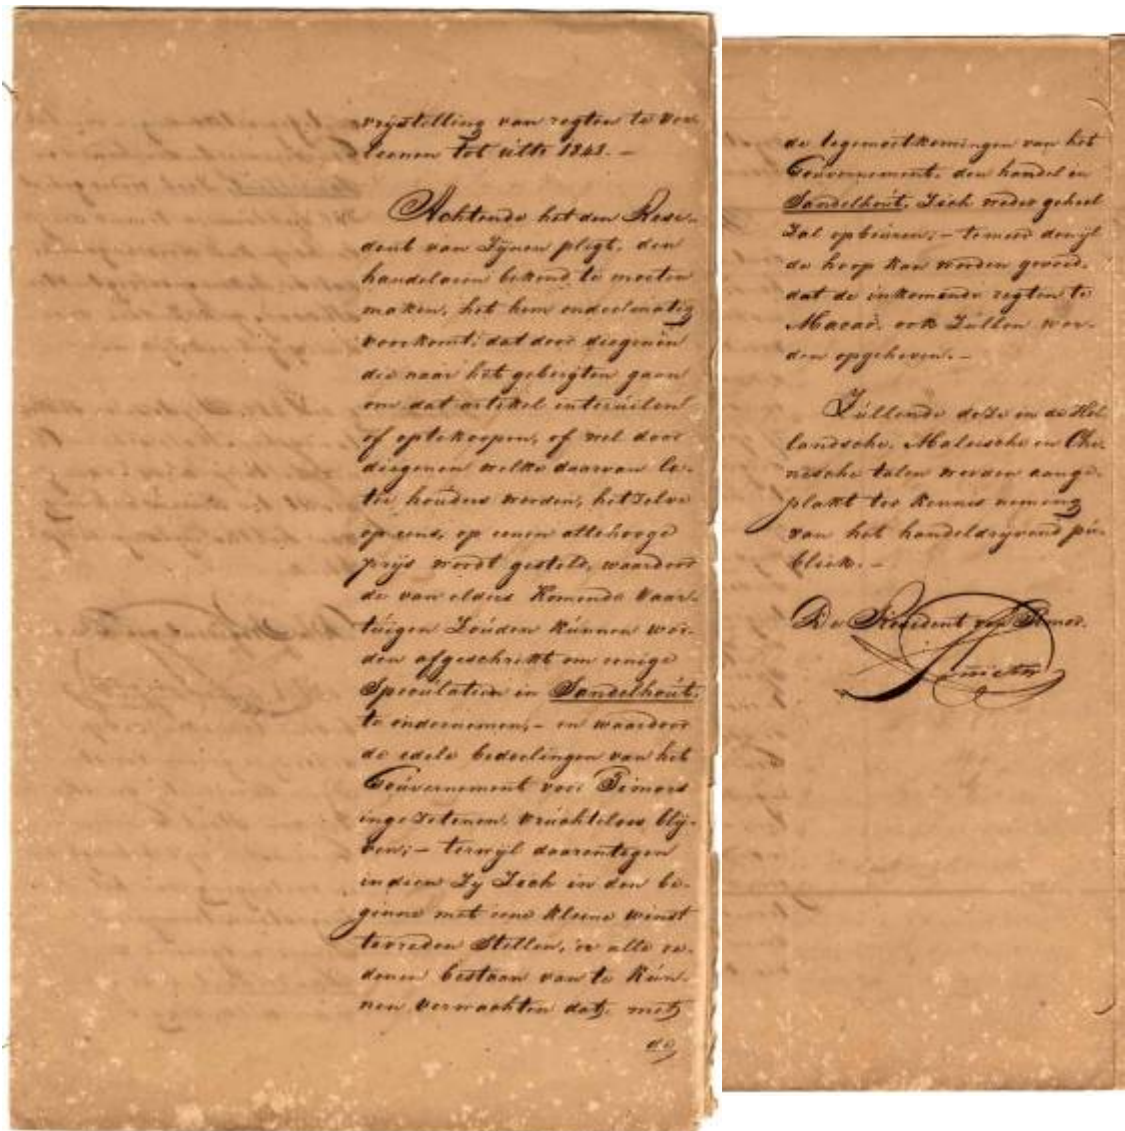 vrijstelling van regten te ver-
leenen tot ulto 1848. —
Achtende het den Resi-
dent van Zijnen pligt, den
handelaren bekend te moeten
maken, het hem ondoelmatig
voorkomt, dat door diegenen
die naar het gebergten gaan
om dat artikel interuilen
of optekoopen, of wel door
diegenen welke daarvan la-
ter houders worden, hetzelve
op eens, op eenen altehooge
prijs wordt gesteld, waardoor
de van elders Komende Vaar-
tuigen Zouden Kunnen wor-
den afgeschrikt om eenige
Speculatien in Sandelhout,
te ondernemen, – en waardoor
de edele bedoelingen van het
Gouvernement voor Timors
ingezetenen, vruchteloos blij-
ven; – terwijl daarentegen
indien Zij Zich in den be-
ginne met eene kleine winst
tevreden Stellen, er alle re-
denen bestaan van te Kun-
nen verwachten dat, met
de
de tegemoetkomingen van het
Gouvernement, den handel in
Sandelhout, Zich weder geheel
Zal opbeuren; – temeer dewijl
de hoop kan worden gevoed,
dat de inkomende regten te
Macao, ook Zullen wor-
den opgeheven. –
Zullende deze in de Hol-
landsche, Maleische en Chi-
nesche talen worden aange-
plakt ter kennis neming
van het handeldrijvend pu-
bliek. –
De Resident van Timor.